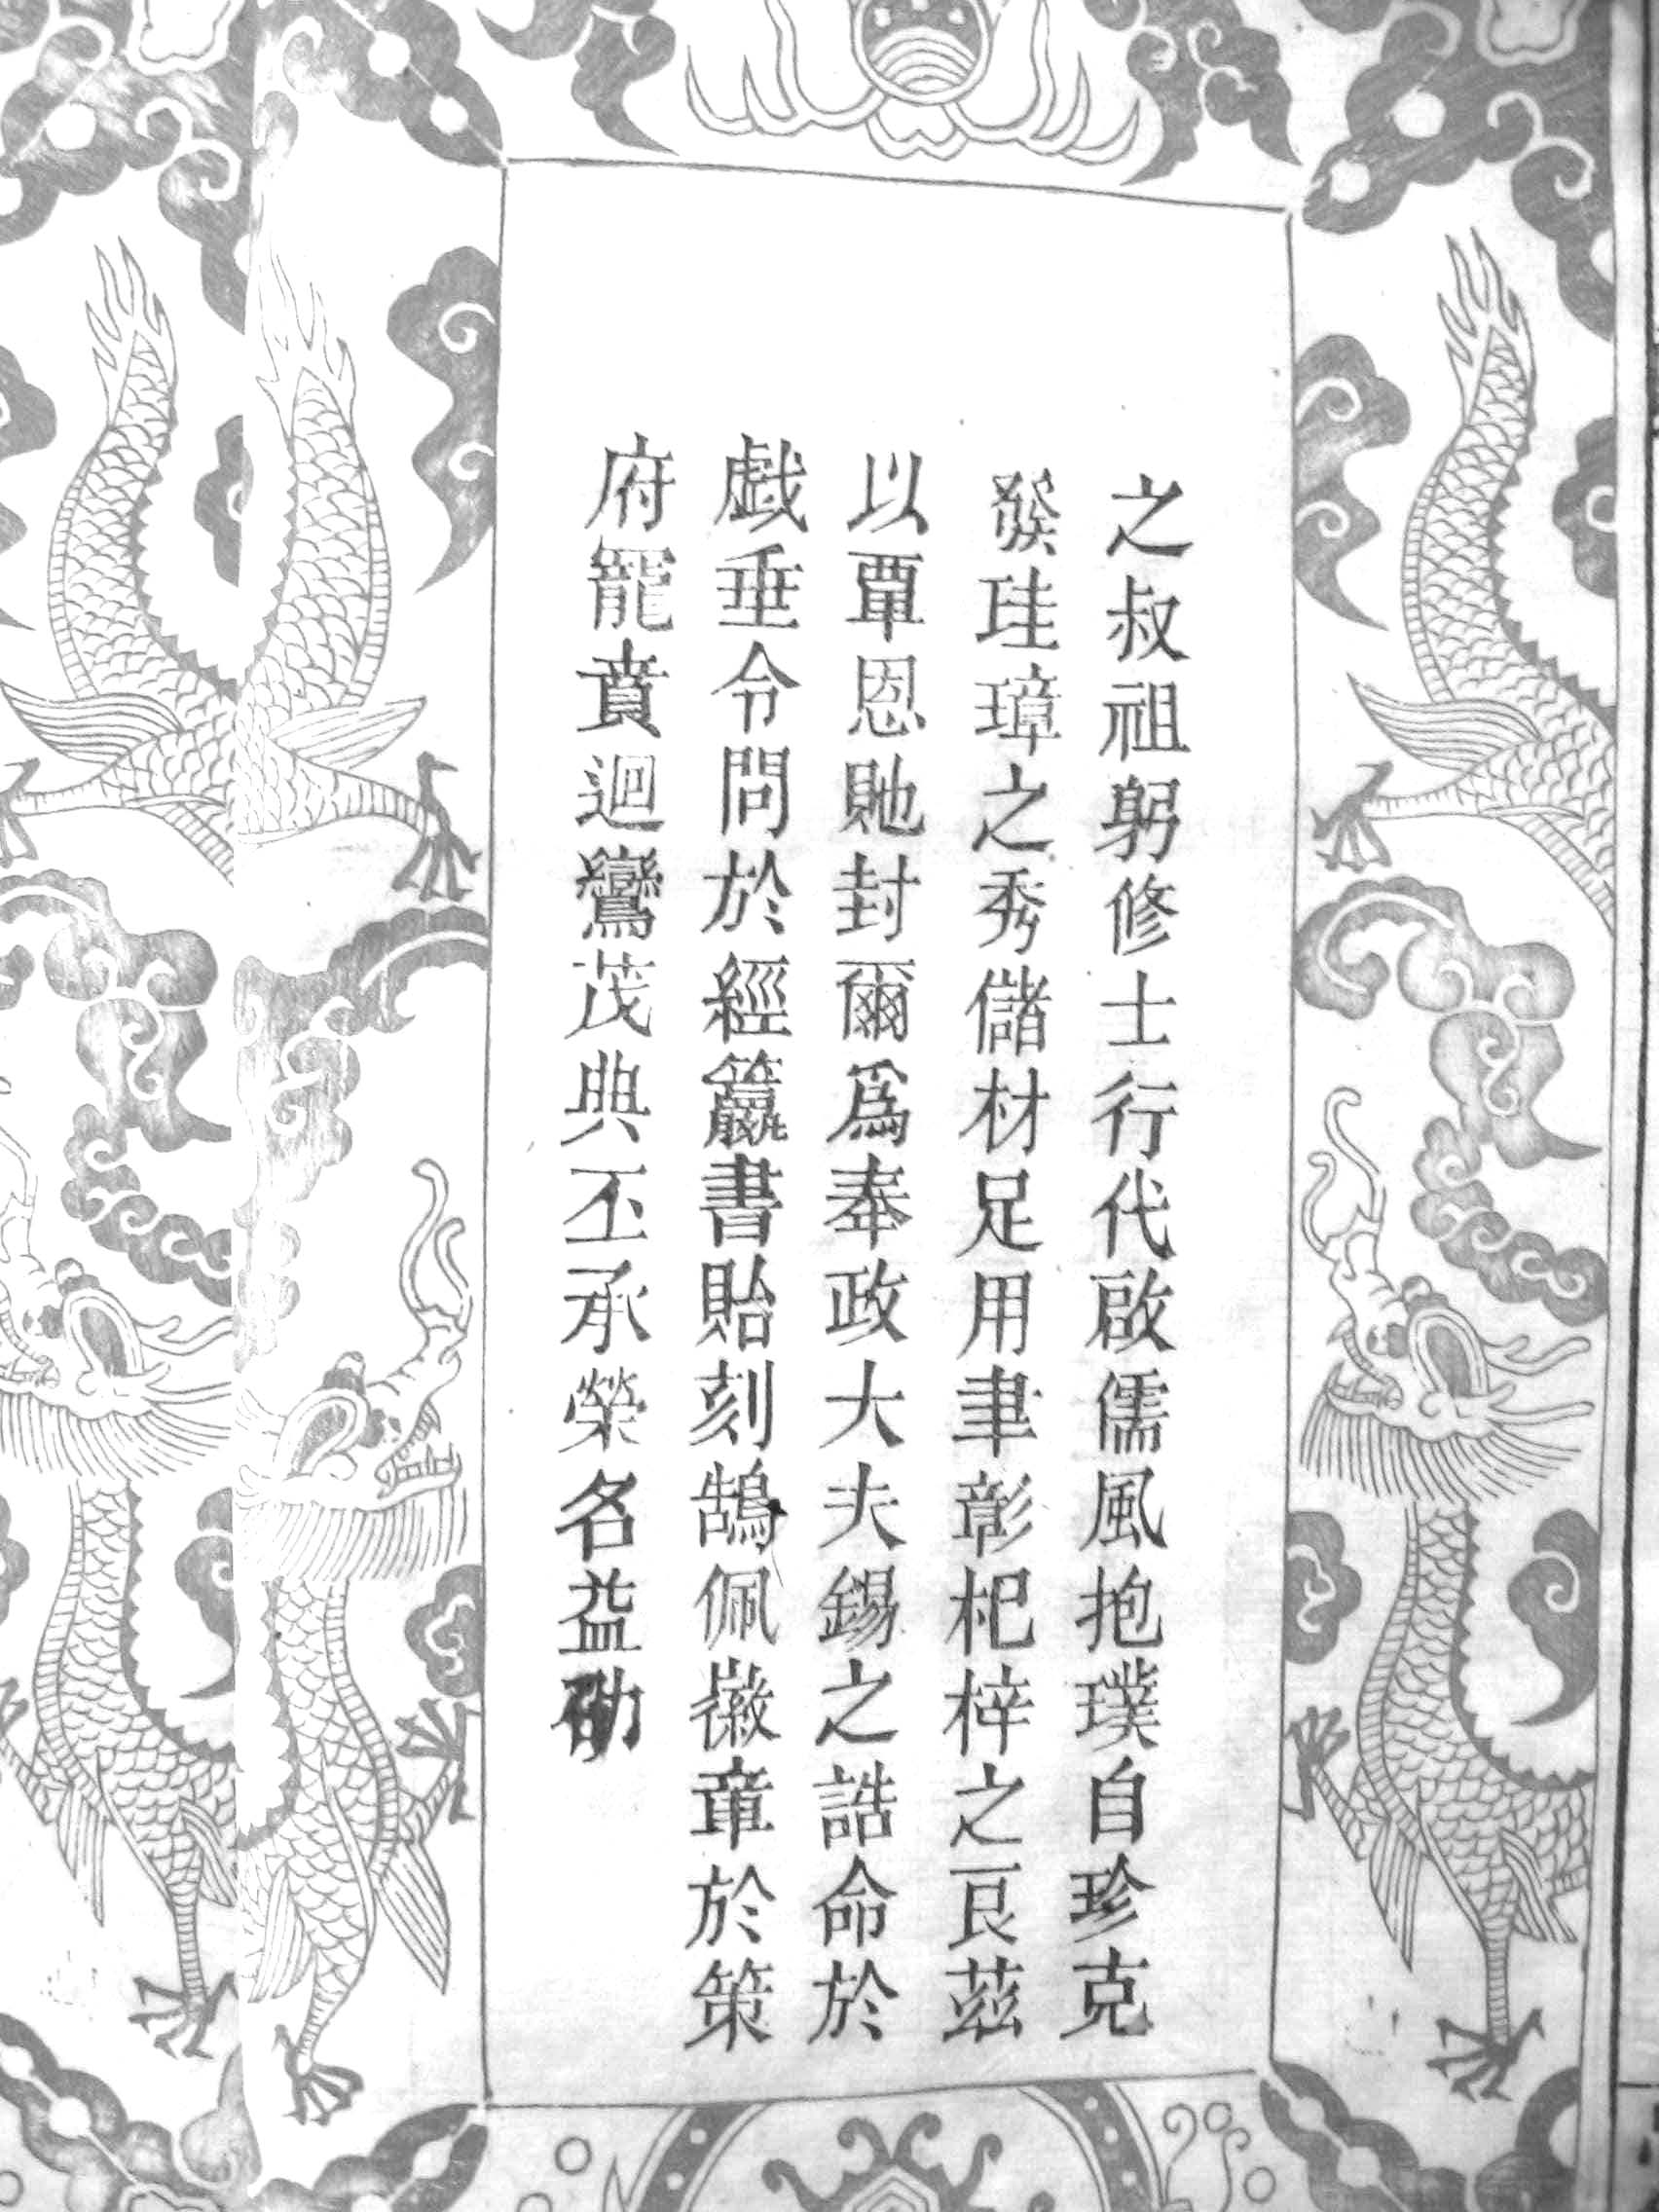 之叔祖躬修士行代啟儒風抱璞自珍克
發珪璋之秀儲材足用聿彰杞梓之良茲
以覃恩貤封爾爲奉政大夫錫之誥命於
戱垂令問於經籯書貽刻鵠佩徽章於策
府寵賁迴鸞茂典丕承榮名益劭